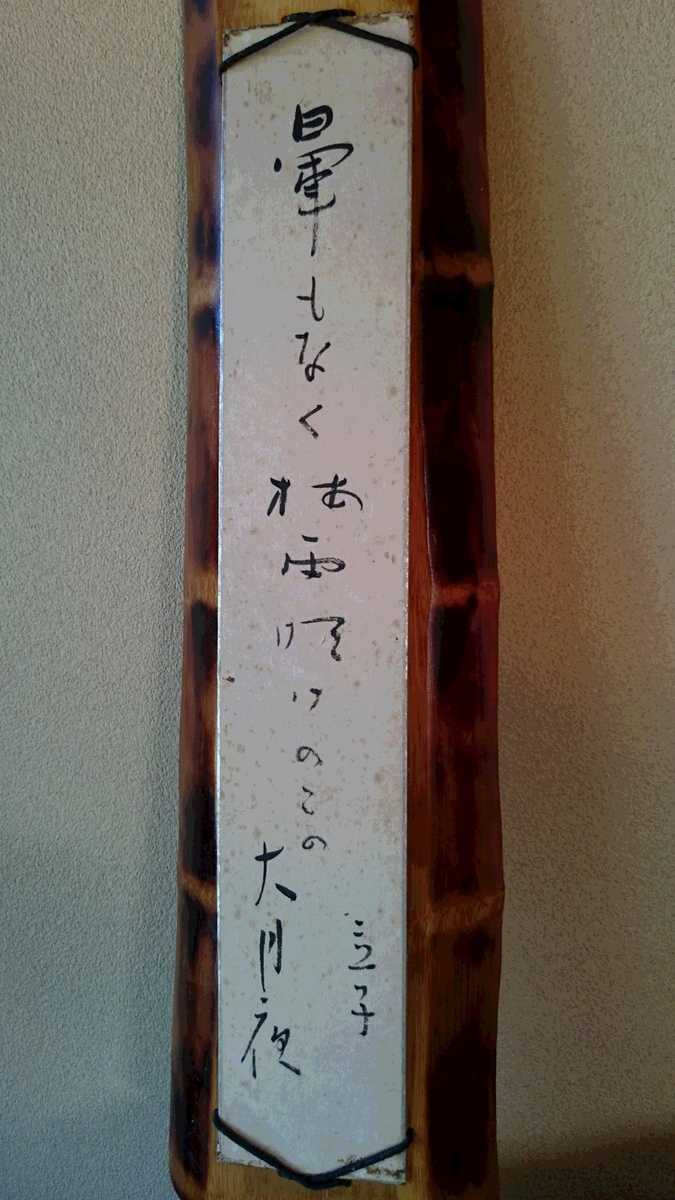 暈もなく梅雨晴けのこの大月夜
立子